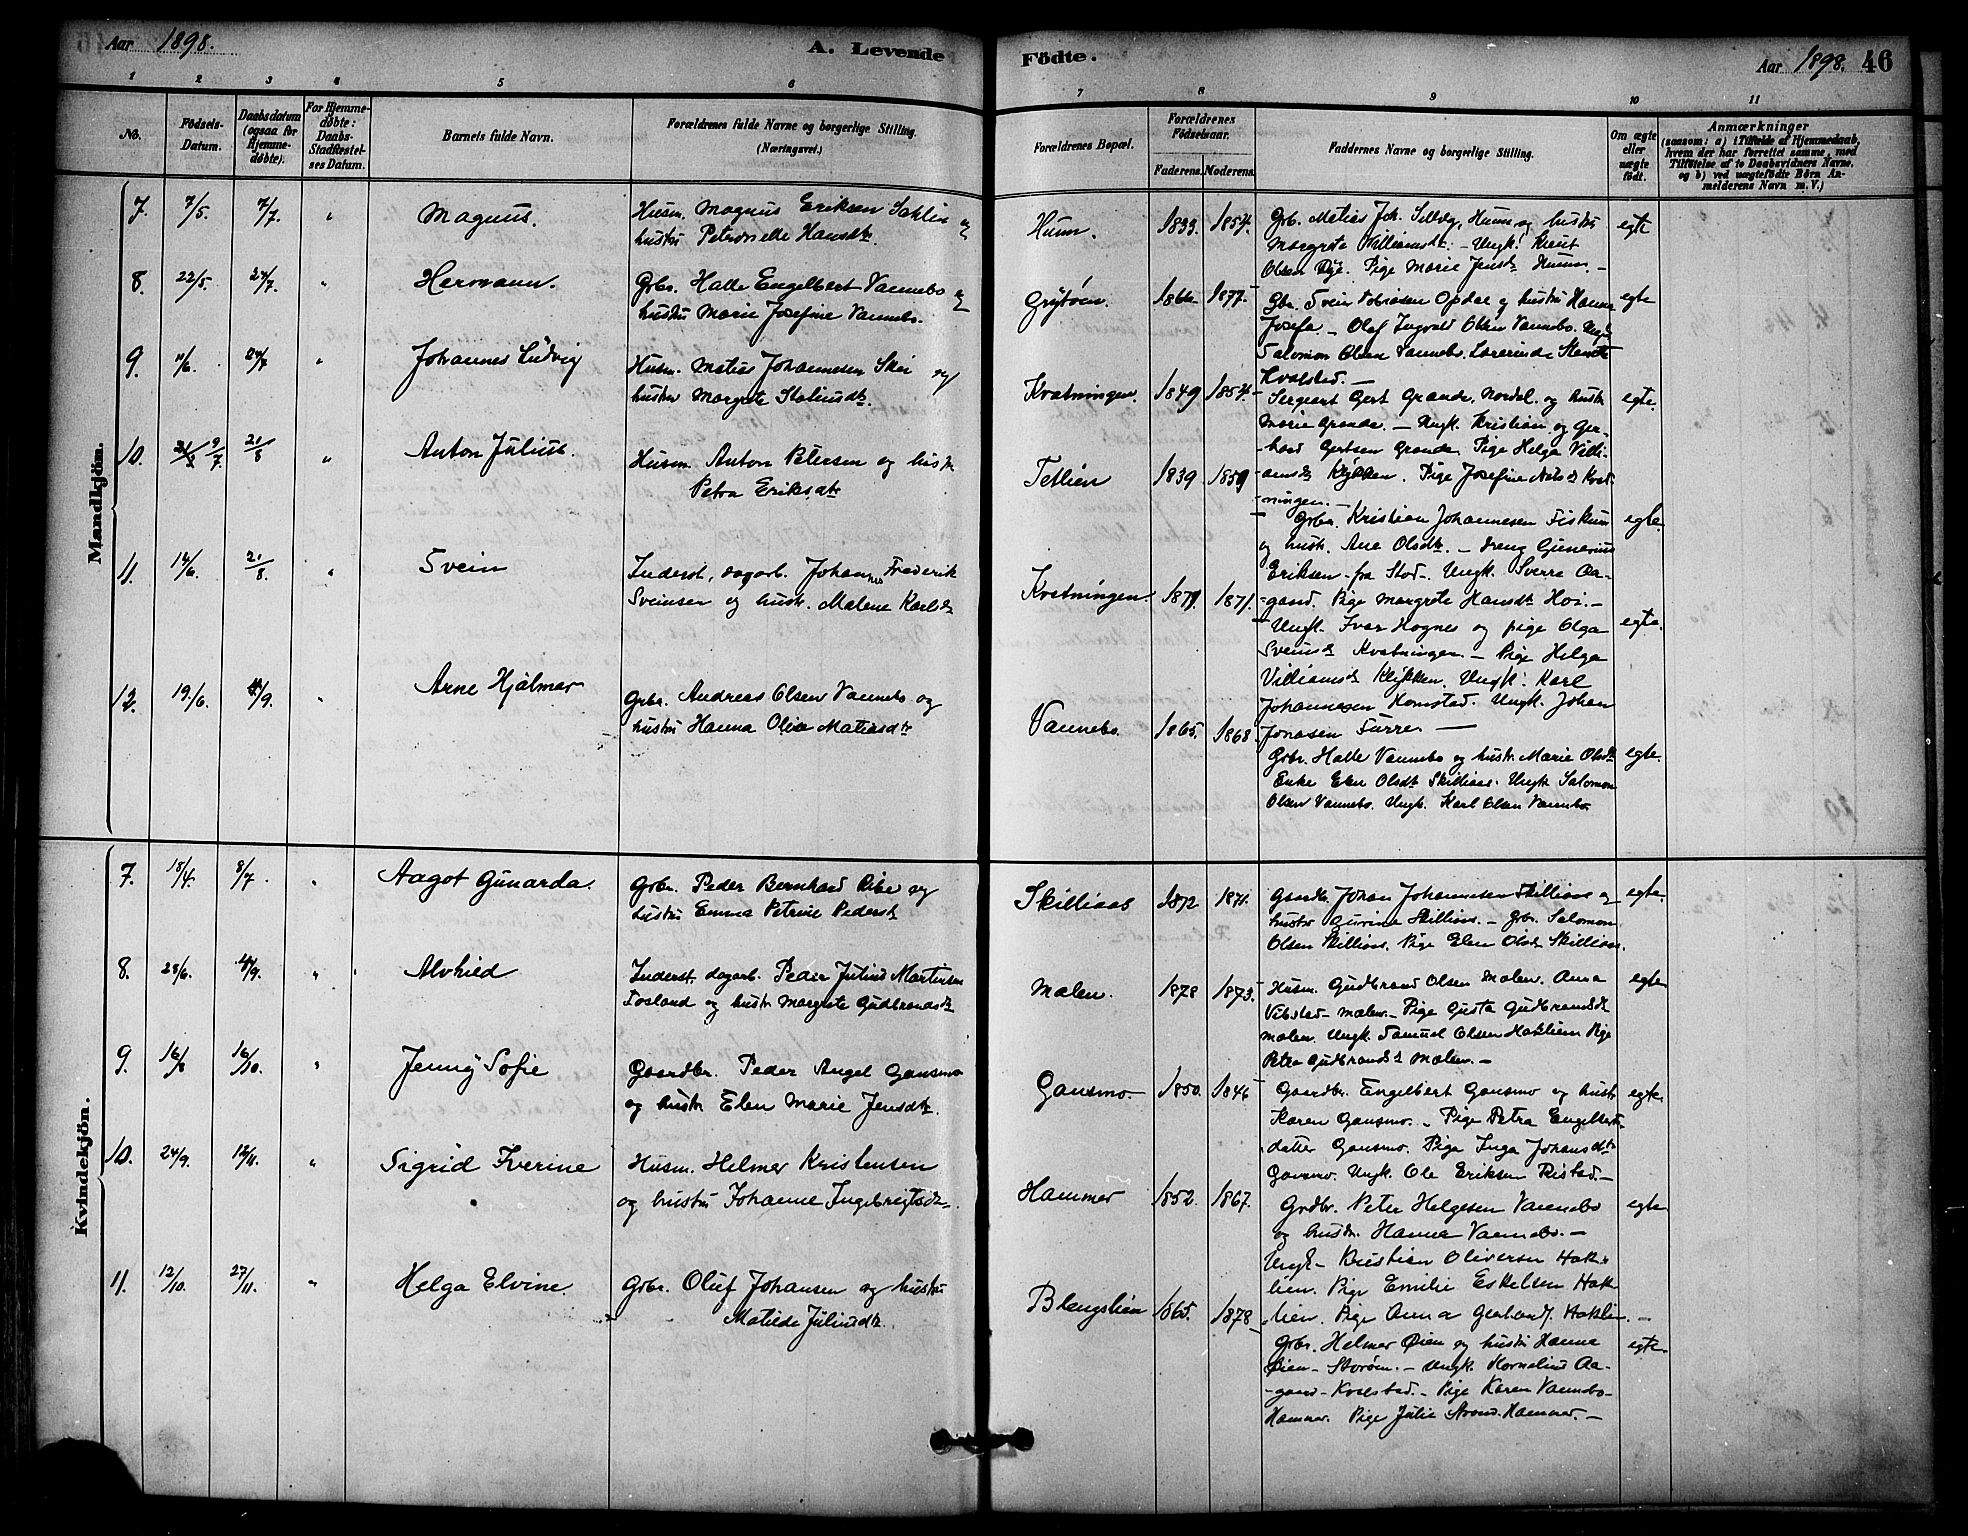 Aar 1898.
A. Levende
Fødte.
Aar 1898. 46
1 2 3 4 5 6
7 8 9 10 11
No.
Fødsels-
Datum.
Daabsdatum
(ogsaa for
Hjemme-
døbte).
For Hjemme-
døbte:
Daabs-
Stadfæstel-
ses Datum.
Barnets fulde Navn.
Forældrenes fulde Navne og borgerlige Stilling.
(Næringsvei.)
Forældrenes Bopæl.
Forældrenes
Fødselsaar.
Faderens. Moderens.
Faddernes Navne og borgerlige Stilling.
Om ægte
eller
uægte
født.
Anmærkninger
(saasom: a) i Tilfælde af Hjemmedaab,
hvem der har forrettet samme, med
Tilføielse af to Daabsvidners Navne,
og b) ved uægtefødte Børn An-
melderens Navn m. V.)
Mandkjøn.
7. 7/5. 7/7. "
Magnus.
Husm. Magnus Eriksen Sahlin og
hustru Petronelle Hansdtr.
Hunn. 1833. 1854.
Grb. Matias Joh. Selløeg, Hunn og hustru
Margrete Villiamsdtr. – Ungk. Knut
Olsen Øye. Pige Marie Jensdr Hunn. –
egte
8. 22/5. 24/7. "
Hermann.
Grbr. Halle Engelbert Vannebo og
hustru Marie Josefine Vannebo.
Grytøen. 1866. 1877.
Gbr. Svein Tobiasen Opdal og hustru Hanna
Josefa. – Olaf Ingvald Olsen Vannebo. Ungk
Salomon Olsen Vannebo. Lærerinde
Kvalstad. –
egte
9. 11/6. 24/7 "
Johannes Ludvig
Husm. Matias Johannesen Skei og
hustru Margrete Staliusdtr.
Kvatningen. 1849 1854.
Sergeart Gert Grande, Nordal og hustr
Marie Grande. – Ungk. Kristian og Ger-
hard Gertsen Grande. Pige Helga Villi-
amsdr Klykken. Pige Josefine Nilsd Kvat-
ningen. –
egte.
10. 9/7 21/8 "
Anton Julius.
Husm. Anton Petersen og hustr
Petra Eriksdtr
Tetlien 1839 1859
Grbr. Kristian Johannesen Fiskum
og hustr. Ane Olsdtr. – dreng Gunerius
Eriksen fra Stod. Ungk. Sverre Aa-
gaard. Pige Margrete Hansdtr Hoi. –
egte
11. 14/6. 21/8. "
Svein
Inderst, dagarb. Johannes Frederik
Sveinsen og hustr. Malene Karlsdr
Kvatningen. 1871. 1871.
Ungk. Ivar Hognes og pige Olga
Sveinsdr Kvatningen. – Pige Helga
Villiamsdr Klykken. Ungk. Karl
Johannesen Komstad. Ungk. Johan
Jonasen Turre. –
egte.
12. 19./6. 4/9. "
Arne Hjalmar
Grbr. Andreas Olsen Vannebo og
hustru Hanna Olise Matiasdtr
Vannebo. 1865. 1868.
Grbr. Halle Vannebo og hustr. Marie Olsdtr
Enke Elen Olsdtr Skillias. Ungk Salomon
Olsen Vannebo. Ungk. Karl Olsen Vannebo
egte.
Kvindekjøn.
7. 18/4. 8/7. "
Aagot Gunarda.
Grbr. Peder Bernhard Ribe og
hustru Emma Petrine Pedersdr
Skilliaas 1872 1871.
Gaardb. Johan Johannesen Skillias og
hustru Gurina Skillias. – Grb. Salomon
Olsen Skillias. Pige Elen Olsdr Skillias.
egte.
8. 28/6. 4/9. "
Alvhild
Inderst. dagarb. Peder Julius Martinsen
Fosland og hustr Margrete Gudbrandsdr
Mælen. 1878 1873.
Husm. Gudbrand Olsen Mælen. Anna
Vibstad Mælen. – Pige Gusta Gudbrandsdr
Mælen. Ungk. Samuel Olsen Haklien Pige
Petra Gudbrandsdr Mælen. –
egte
9. 16/8 16/10. "
Jenny Sofie
Gaardbr. Peder Angel Gansmo
og hustr Elen Marie Jensdtr.
Gansmo. 1850. 1846
Gaardbr. Engelbert Gansmo og hustr
Karen Gansmo. – Pige Petra Engelbert-
datter Gansmo. Pige Inga Johansdtr
Gansmo. Ungk. Ole Eriksen Ristad. –
egte.
10. 24/9. 13/11. "
Sigrid Iverine
Husm. Helmer Kristensen
og hustru Johanne Ingebrigtsdr.
Hammer 1852. 1867.
Grdbr. Peter Helgesen Vannebo
og hustr. Hanna Vannebo. –
Ungk – Kristian Oliversen Hak-
lien. Pige Emilie Eskelsen Hak-
lien. Pige Anna Haklien. –
egte
11. 12/10. 27/11. "
Helga Elvine.
Grbr. Oluf Johansen og hustru
Matilde Juliusdtr.
Blengslien 1865. 1878
Grbr. Helmer Øien og hustr Hanna
Øien – Storøen. – Ungk. Kornelius Aa-
gaard – Kvelstad. – Pige Karen Vannebo-
Hammer. Pige Julie Strand. Hammer. –
egte.